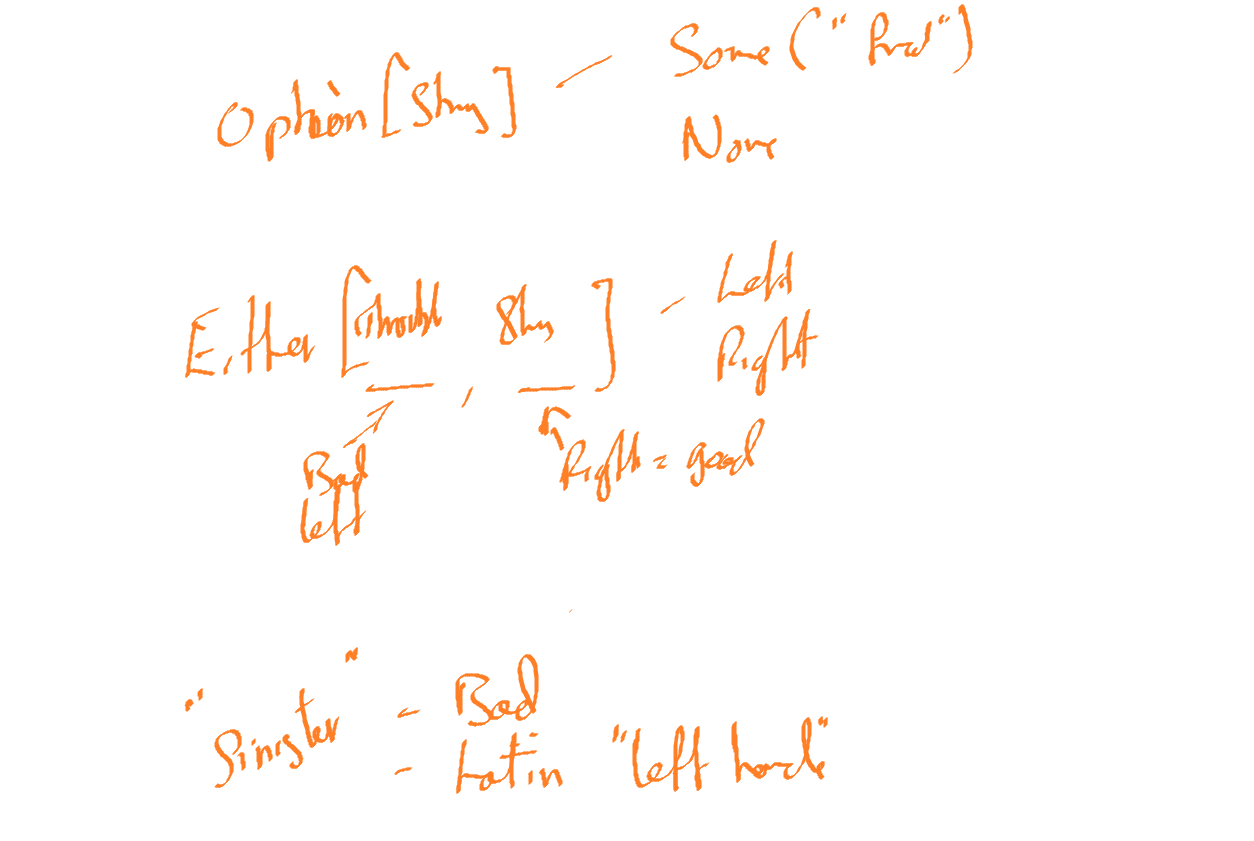 Option [String] - Some ("Fred")
None
Either [Throwabl, String] - Left
Right
Bad
left
Right = good
"Sinister" - Bad
- Latin "left hand"